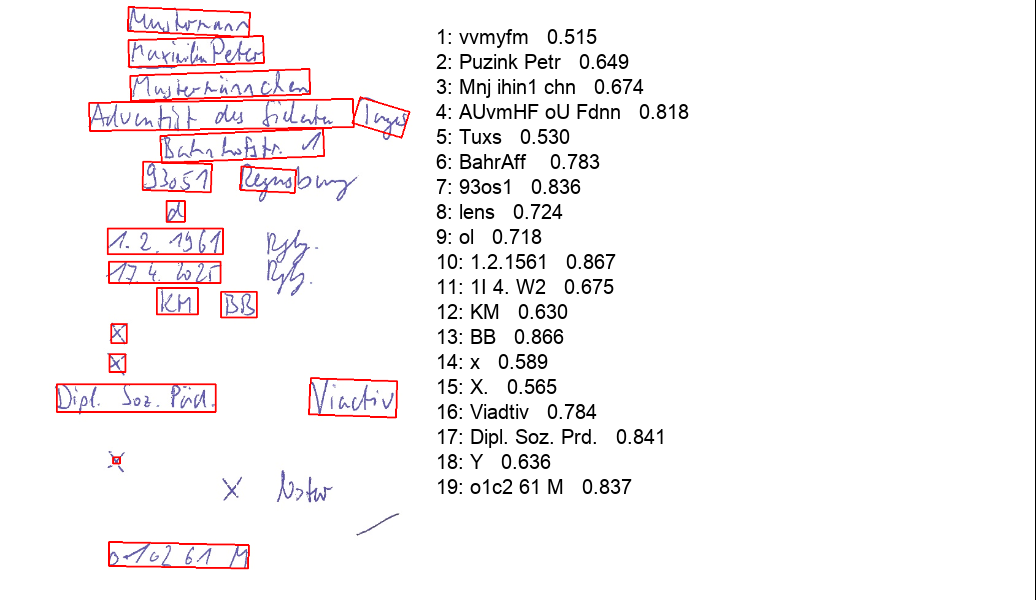 Mustermann
Maximilian Peter
Mustermännchen
Adventist des siebenten Tages
Bahnhofstr. 1
93051 Regensburg
d
1. 2. 1961 Rgbg.
17. 4. 2025 Rgbg.
KM BB
x
x
Dipl. Soz. Päd. Viactiv
x
x Notar
010261 M
1: vvmyfm 0.515
2: Puzink Petr 0.649
3: Mnj ihin1 chn 0.674
4: AUvmHF oU Fdnn 0.818
5: Tuxs 0.530
6: BahrAff 0.783
7: 93os1 0.836
8: lens 0.724
9: ol 0.718
10: 1.2.1561 0.867
11: 1I 4. W2 0.675
12: KM 0.630
13: BB 0.866
14: x 0.589
15: X. 0.565
16: Viadtiv 0.784
17: Dipl. Soz. Prd. 0.841
18: Y 0.636
19: o1c2 61 M 0.837